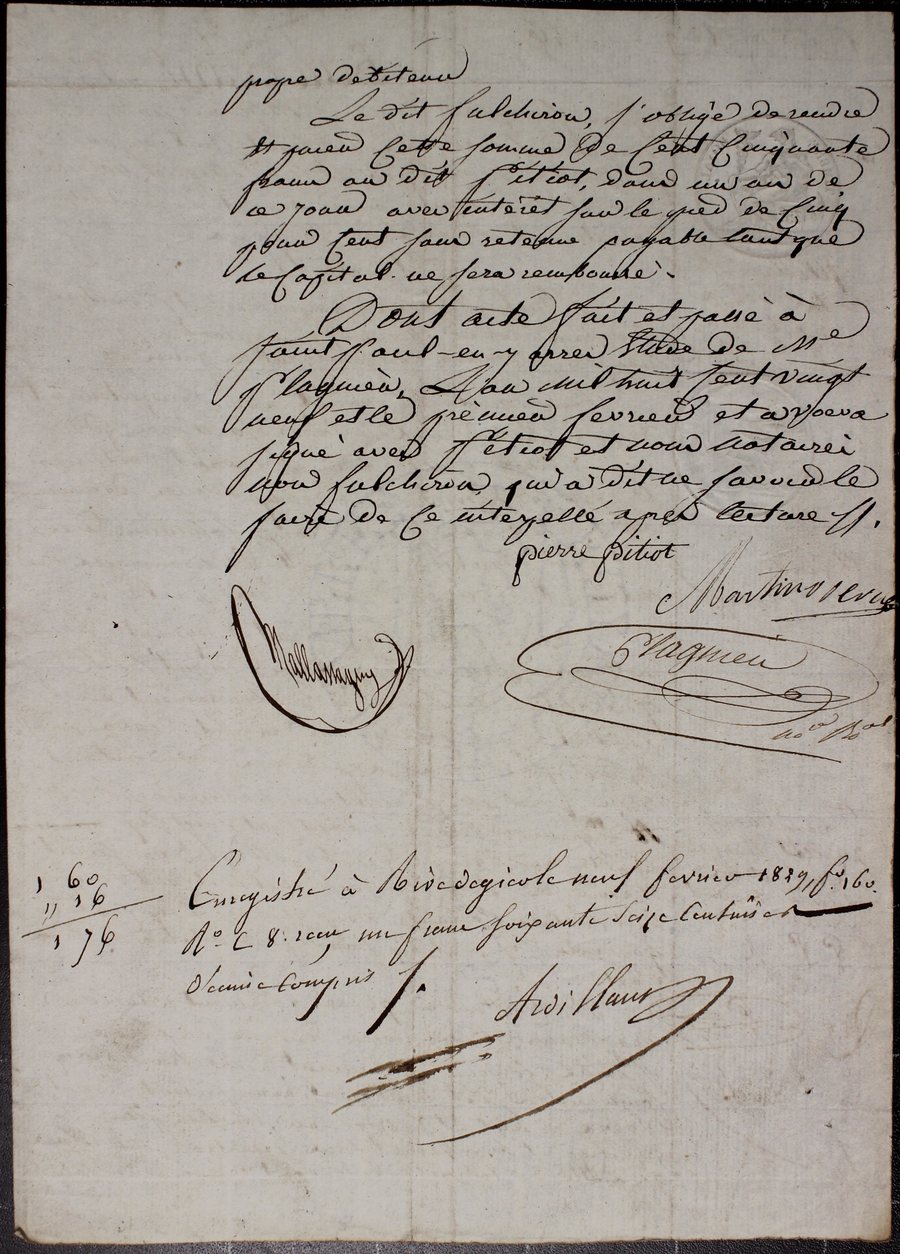 propre débiteur
Le dit fulchiron, s'oblige de rendre
et payer cette somme de Cent Cinquante
francs au dit Pitiot, dans un an de
ce jour avec intérêt sur le pied de Cinq
pour Cent sans retenue payable tant que
le Capital ne sera remboursé.
Dont acte fait et passé à
Saint Paul-en-jarrer Etude de Me
Plagnieu, L'an mil huit Cent vingt
neuf et le prémier fevrier et
signé avec Pitiot et nous notaires
non fulchiron qui a dit ne savoir le
faire de Ce interpellé après lecture
pierre pitiot
Martin
Mallassagny
Plagnieu
nore Ral
Enregistré à Rivedegier le neuf fevrier 1829, fo. 160.
Ro. C 8. reçu un franc soixante Seize Centimes
décime compris
1 60
" 16
1 76